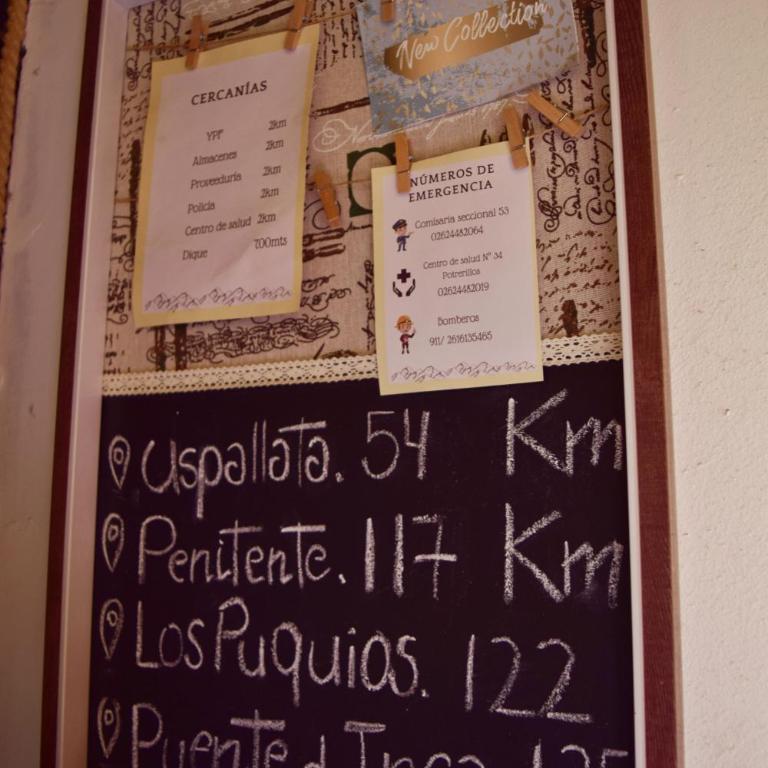 New Collection
CERCANÍAS
YPF 2km
Almacenes 2km
Proveeduría 2km
Policía 2km
Centro de salud 2km
Dique 700mts
NÚMEROS DE
EMERGENCIA
Comisaría seccional 53
02624482064
Centro de salud N° 34
Potrerillos
02624482019
Bomberos
911/ 2616135465
Uspallata. 54 Km
Penitente. 117 Km
Los Puquios. 122
Puente d Inca 125